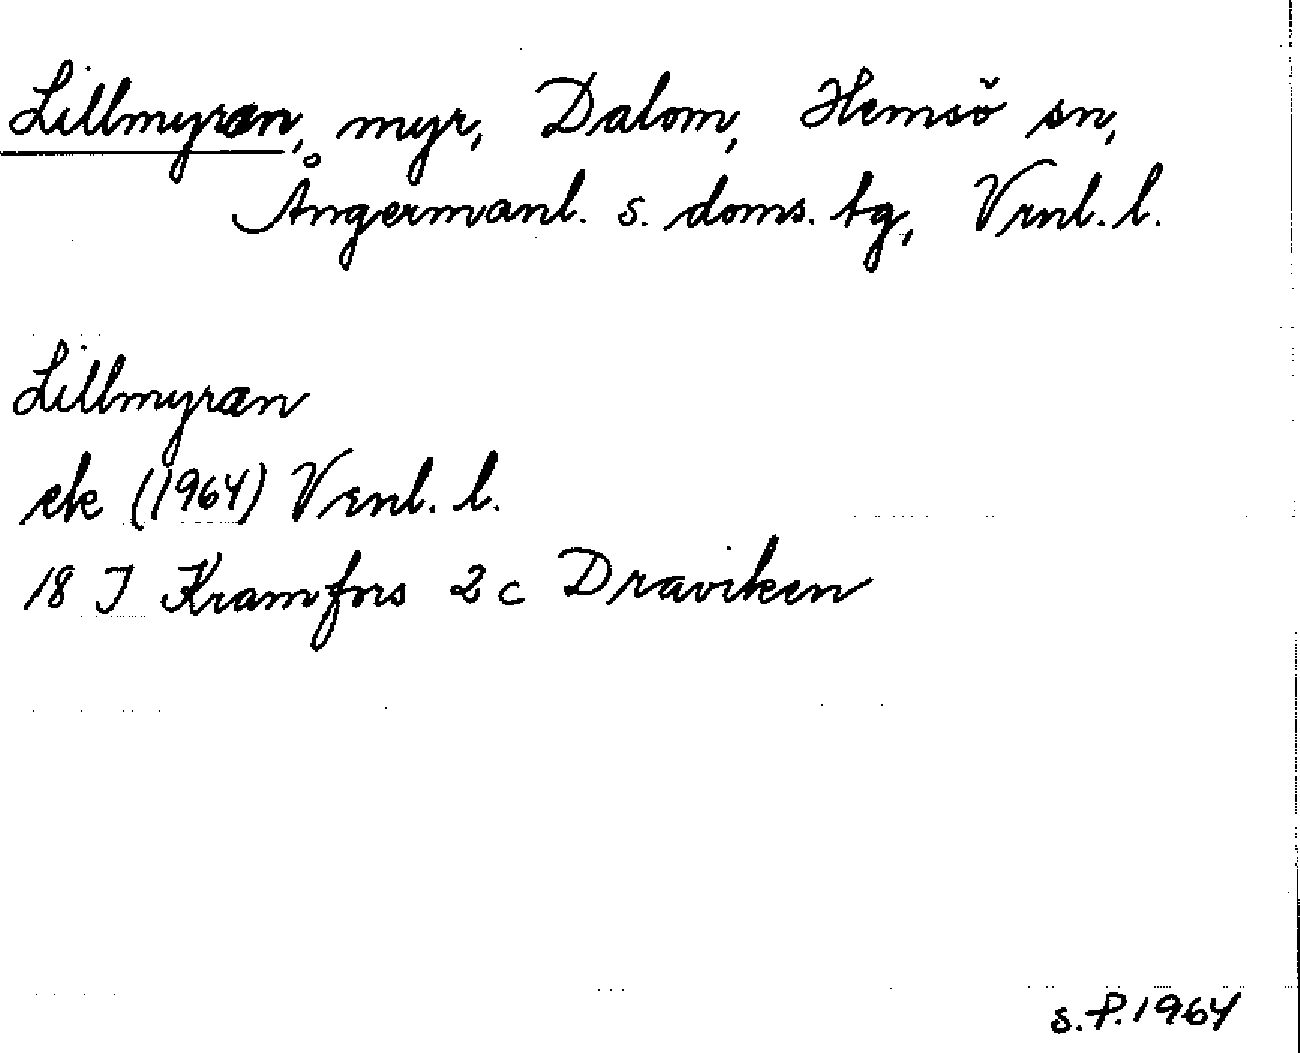 Lillmyran, myr, Dalom, Hemsö sn,
Ångermanl. s. doms. tg, Vrnl. l.
Lillmyran
ek (1964) Vrnl. l.
18 I Kramfors 2c Draviken
S.P. 1964